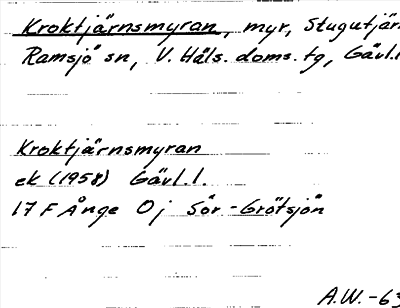 Kroktjärnsmyran, myr, Stugutjär
Ramsjö sn, V. Häls. doms. tg, Gävl.l
Kroktjärnsmyran
ek (1958) Gävl.l.
17 F Ånge 0 j Sör-Grötsjön
A.W.-63